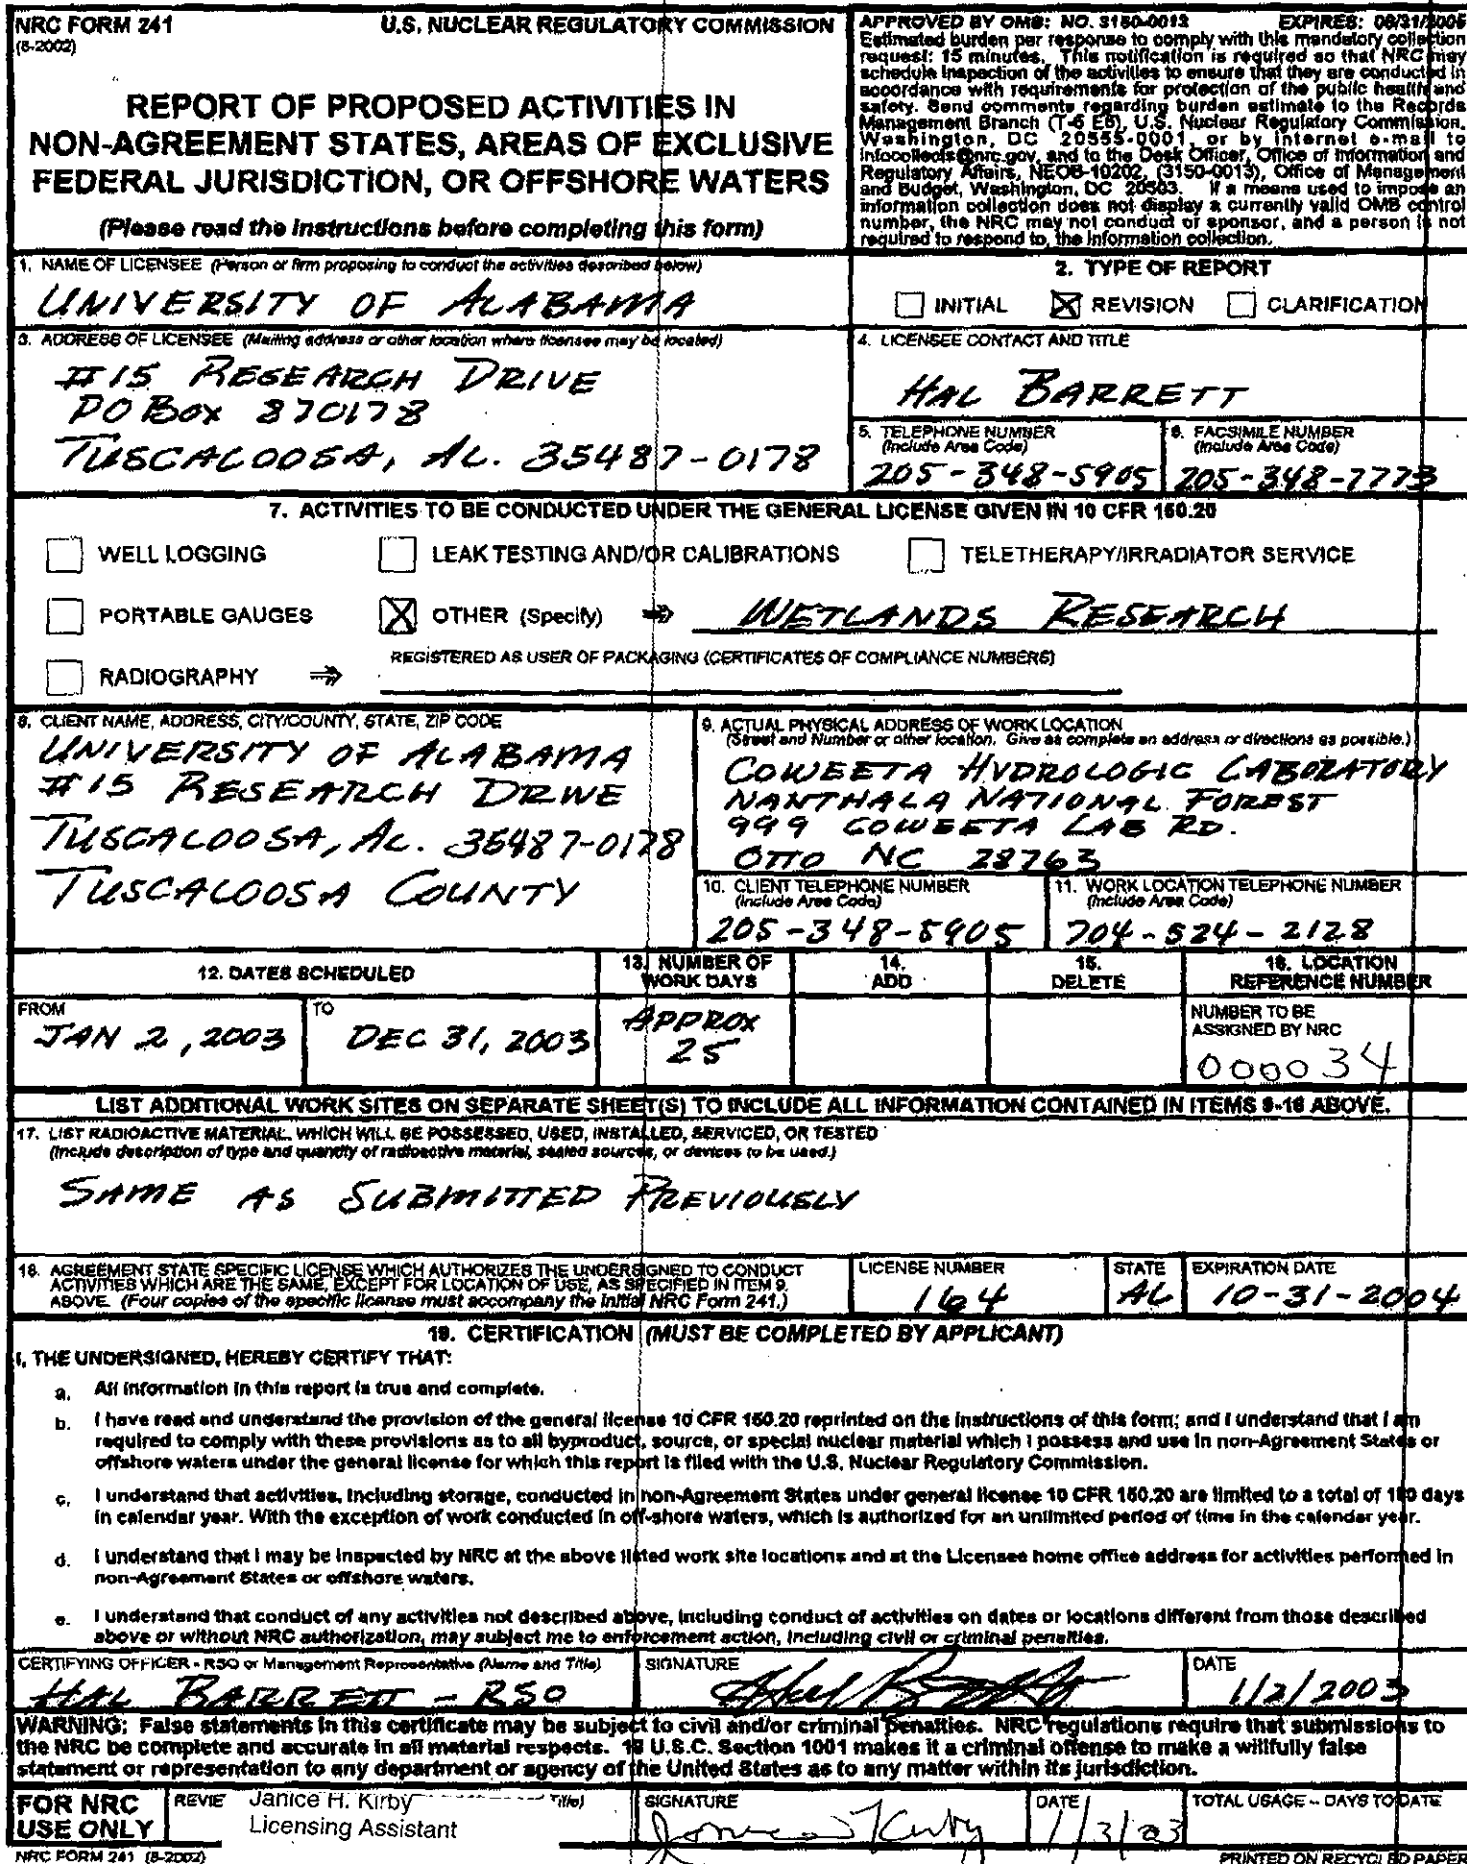 NRC FORM 241
(8-2002)
U.S. NUCLEAR REGULATORY COMMISSION
REPORT OF PROPOSED ACTIVITIES IN
NON-AGREEMENT STATES, AREAS OF EXCLUSIVE
FEDERAL JURISDICTION, OR OFFSHORE WATERS
(Please read the instructions before completing this form)
APPROVED BY OMB: NO. 3150-0013 EXPIRES: 08/31/2005
Estimated burden per response to comply with this mandatory collection
request: 15 minutes. This notification is required so that NRC may
schedule inspection of the activities to ensure that they are conducted in
accordance with requirements for protection of the public health and
safety. Send comments regarding burden estimate to the Records
Management Branch (T-6 E6), U.S. Nuclear Regulatory Commission,
Washington, DC 20555-0001, or by internet e-mail to
infocollects@nrc.gov, and to the Desk Officer, Office of Information and
Regulatory Affairs, NEOB-10202, (3150-0013), Office of Management
and Budget, Washington, DC 20503. If a means used to impose an
information collection does not display a currently valid OMB control
number, the NRC may not conduct or sponsor, and a person is not
required to respond to, the information collection.
1. NAME OF LICENSEE (Person or firm proposing to conduct the activities described below)
UNIVERSITY OF ALABAMA
2. TYPE OF REPORT
INITIAL REVISION CLARIFICATION
3. ADDRESS OF LICENSEE (Mailing address or other location where licensee may be located)
#15 RESEARCH DRIVE
PO Box 870178
TUSCALOOSA, AL. 35487-0178
4. LICENSEE CONTACT AND TITLE
HAL BARRETT
5. TELEPHONE NUMBER
(Include Area Code)
205-348-5905
6. FACSIMILE NUMBER
(Include Area Code)
205-348-7773
7. ACTIVITIES TO BE CONDUCTED UNDER THE GENERAL LICENSE GIVEN IN 10 CFR 150.20
WELL LOGGING LEAK TESTING AND/OR CALIBRATIONS TELETHERAPY/IRRADIATOR SERVICE
PORTABLE GAUGES OTHER (Specify) WETLANDS RESEARCH
RADIOGRAPHY REGISTERED AS USER OF PACKAGING (CERTIFICATES OF COMPLIANCE NUMBERS)
8. CLIENT NAME, ADDRESS, CITY/COUNTY, STATE, ZIP CODE
UNIVERSITY OF ALABAMA
#15 RESEARCH DRIVE
TUSCALOOSA, AL. 35487-0178
TUSCALOOSA COUNTY
9. ACTUAL PHYSICAL ADDRESS OF WORK LOCATION
(Street and Number or other location. Give as complete an address or directions as possible.)
COWEETA HYDROLOGIC LABORATORY
NANTHALA NATIONAL FOREST
999 COWEETA LAB RD.
OTTO NC 28763
10. CLIENT TELEPHONE NUMBER
(Include Area Code)
205-348-5905
11. WORK LOCATION TELEPHONE NUMBER
(Include Area Code)
704-524-2128
12. DATES SCHEDULED
FROM
JAN 2, 2003
TO
DEC 31, 2003
13. NUMBER OF
WORK DAYS
APPROX
25
14.
ADD
15.
DELETE
16. LOCATION
REFERENCE NUMBER
NUMBER TO BE
ASSIGNED BY NRC
000034
LIST ADDITIONAL WORK SITES ON SEPARATE SHEET(S) TO INCLUDE ALL INFORMATION CONTAINED IN ITEMS 8-16 ABOVE.
17. LIST RADIOACTIVE MATERIAL, WHICH WILL BE POSSESSED, USED, INSTALLED, SERVICED, OR TESTED
(Include description of type and quantity of radioactive material, sealed sources, or devices to be used.)
SAME AS SUBMITTED PREVIOUSLY
18. AGREEMENT STATE SPECIFIC LICENSE WHICH AUTHORIZES THE UNDERSIGNED TO CONDUCT
ACTIVITIES WHICH ARE THE SAME, EXCEPT FOR LOCATION OF USE, AS SPECIFIED IN ITEM 9
ABOVE. (Four copies of the specific license must accompany the initial NRC Form 241.)
LICENSE NUMBER
164
STATE
AL
EXPIRATION DATE
10-31-2004
19. CERTIFICATION (MUST BE COMPLETED BY APPLICANT)
I, THE UNDERSIGNED, HEREBY CERTIFY THAT:
a. All information in this report is true and complete.
b. I have read and understand the provision of the general license 10 CFR 150.20 reprinted on the instructions of this form; and I understand that I am
required to comply with these provisions as to all byproduct, source, or special nuclear material which I possess and use in non-Agreement States or
offshore waters under the general license for which this report is filed with the U.S. Nuclear Regulatory Commission.
c. I understand that activities, including storage, conducted in non-Agreement States under general license 10 CFR 150.20 are limited to a total of 180 days
in calendar year. With the exception of work conducted in off-shore waters, which is authorized for an unlimited period of time in the calendar year.
d. I understand that I may be inspected by NRC at the above listed work site locations and at the Licensee home office address for activities performed in
non-Agreement States or offshore waters.
e. I understand that conduct of any activities not described above, including conduct of activities on dates or locations different from those described
above or without NRC authorization, may subject me to enforcement action, including civil or criminal penalties.
CERTIFYING OFFICER - RSO or Management Representative (Name and Title)
HAL BARRETT - RSO
SIGNATURE
Hal Barrett
DATE
1/2/2003
WARNING: False statements in this certificate may be subject to civil and/or criminal penalties. NRC regulations require that submissions to
the NRC be complete and accurate in all material respects. 18 U.S.C. Section 1001 makes it a criminal offense to make a willfully false
statement or representation to any department or agency of the United States as to any matter within its jurisdiction.
FOR NRC
USE ONLY
REVIE Janice H. Kirby Title)
Licensing Assistant
SIGNATURE
Janice H Kirby
DATE
1/3/03
TOTAL USAGE - DAYS TO DATE
NRC FORM 241 (8-2002)
PRINTED ON RECYCLED PAPER